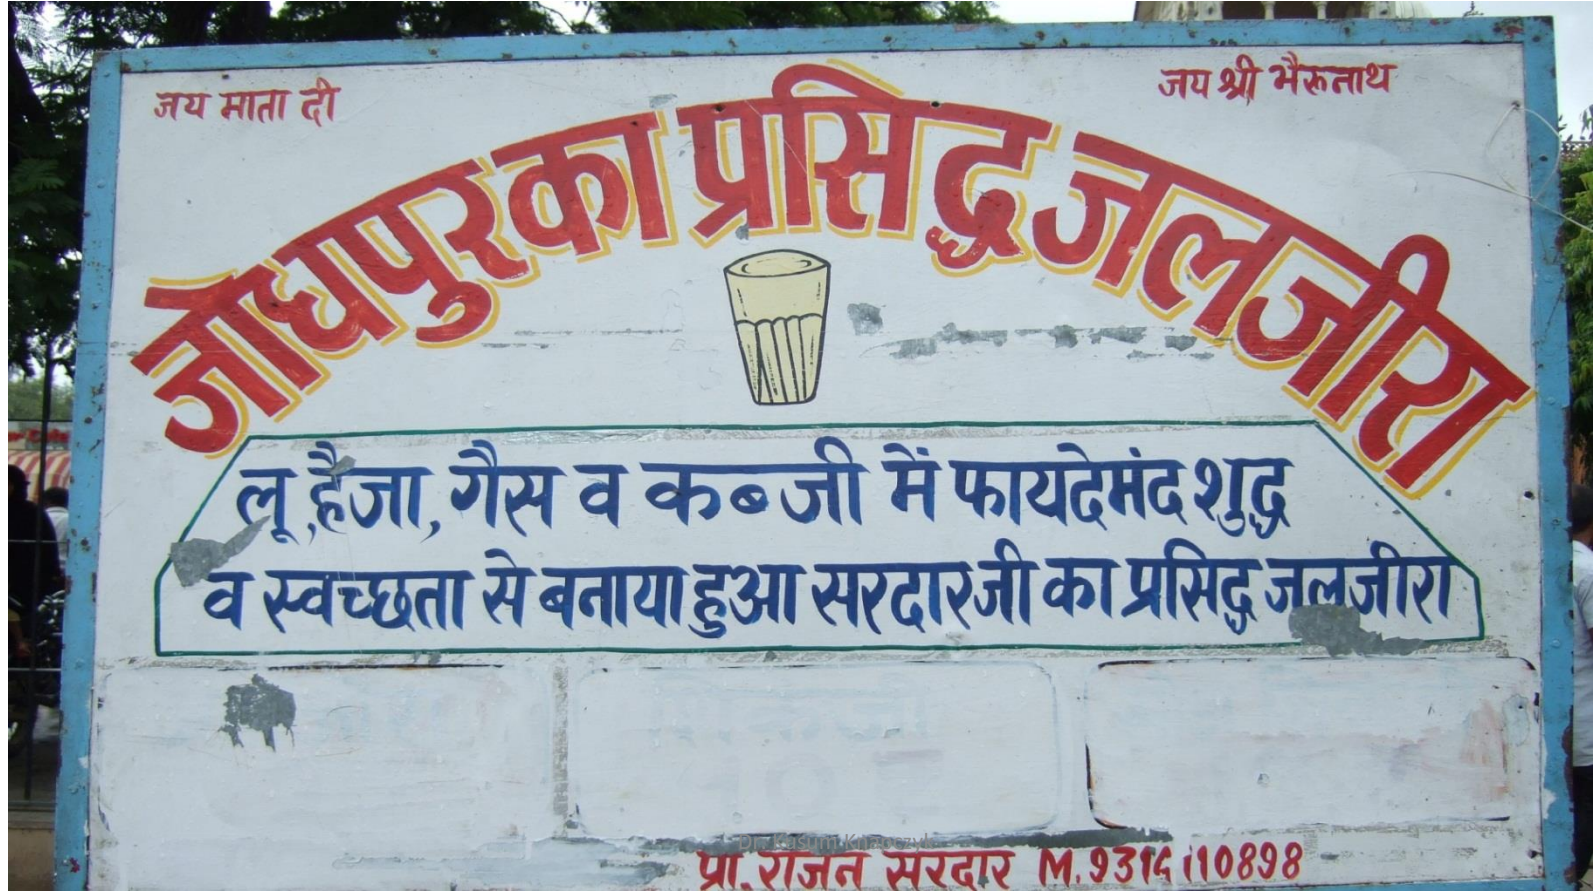 जय माता दी
जय श्री भैरूनाथ
जोधपुर का प्रसिद्ध जलजीरा
लू, हैजा, गैस व कब्जी में फायदेमंद शुद्ध
व स्वच्छता से बनाया हुआ सरदारजी का प्रसिद्ध जलजीरा
Dr. Kusum Knapczyk
प्रा. राजन सरदार M.9314110898